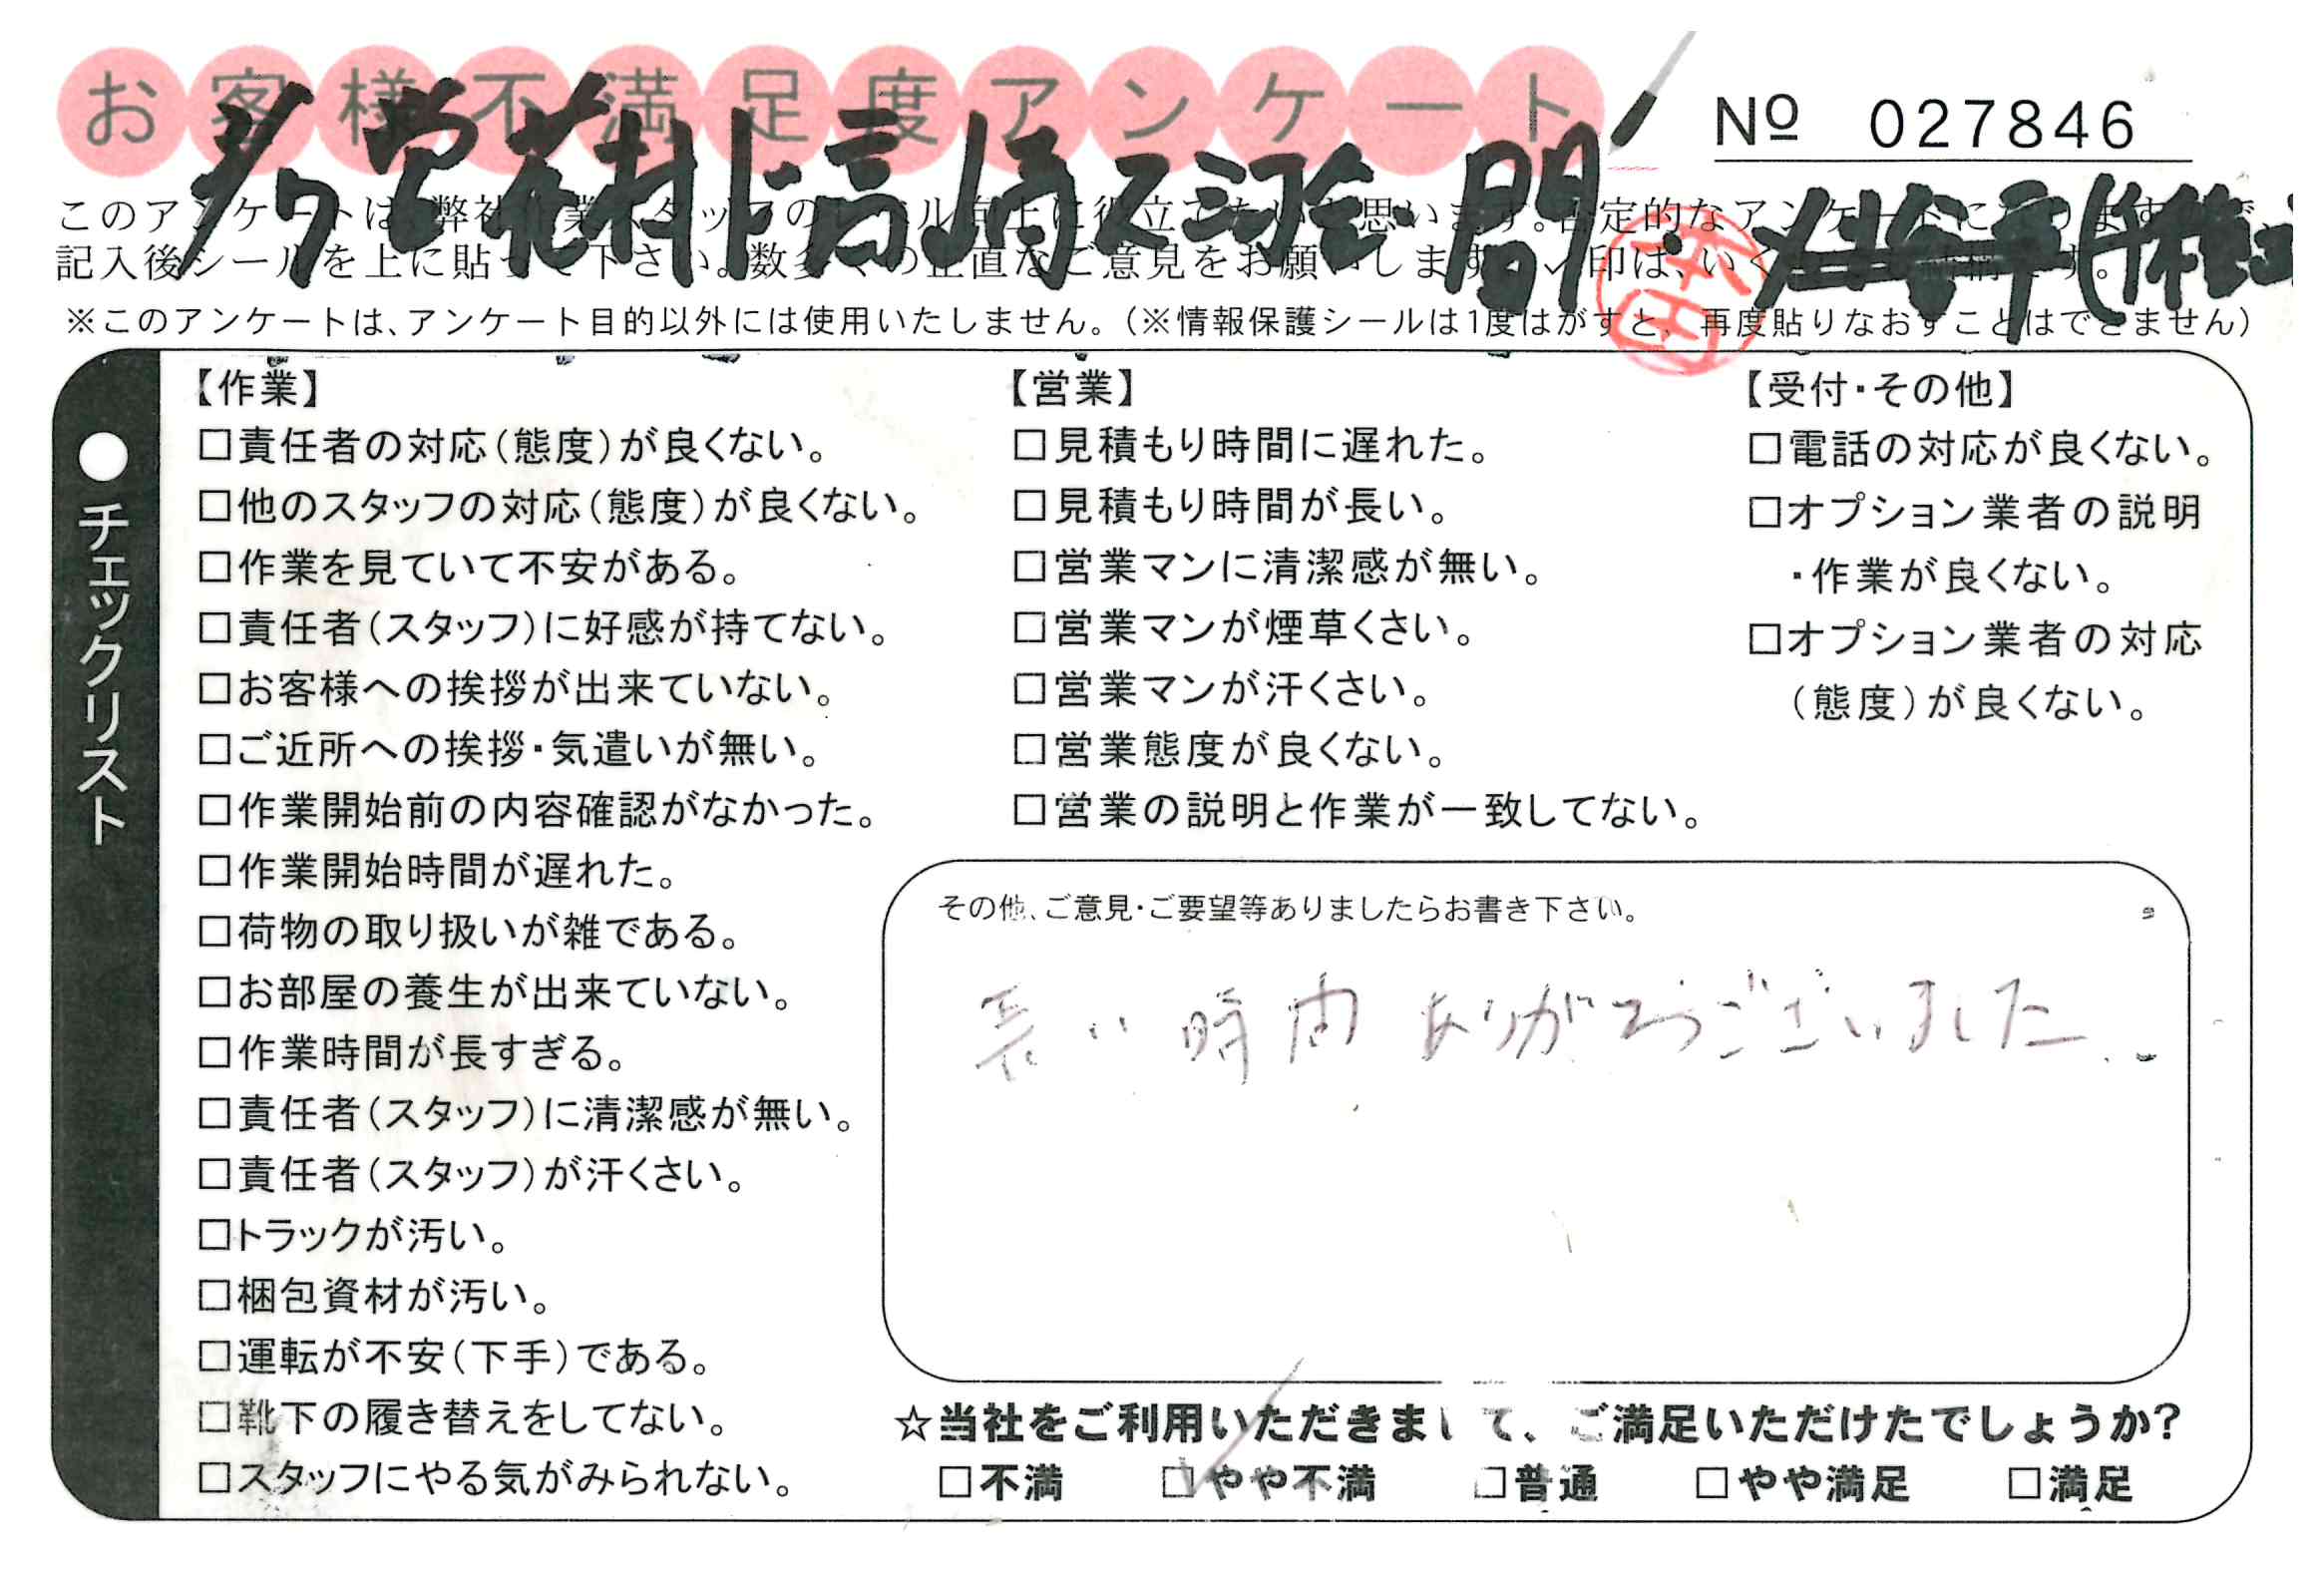 お客様不満足度アンケート
№ 027846
このアンケートは、弊社作業スタッフの
記入後シールを上に貼って下さい。数多くの正直なご意見をお願いします。
※このアンケートは、アンケート目的以外には使用いたしません。(※情報保護シールは1度はがすと、再度貼りなおすことはできません)
●チェックリスト
【作業】
□責任者の対応(態度)が良くない。
□他のスタッフの対応(態度)が良くない。
□作業を見ていて不安がある。
□責任者(スタッフ)に好感が持てない。
□お客様への挨拶が出来ていない。
□ご近所への挨拶・気遣いが無い。
□作業開始前の内容確認がなかった。
□作業開始時間が遅れた。
□荷物の取り扱いが雑である。
□お部屋の養生が出来ていない。
□作業時間が長すぎる。
□責任者(スタッフ)に清潔感が無い。
□責任者(スタッフ)が汗くさい。
□トラックが汚い。
□梱包資材が汚い。
□運転が不安(下手)である。
□靴下の履き替えをしてない。
□スタッフにやる気がみられない。
【営業】
□見積もり時間に遅れた。
□見積もり時間が長い。
□営業マンに清潔感が無い。
□営業マンが煙草くさい。
□営業マンが汗くさい。
□営業態度が良くない。
□営業の説明と作業が一致してない。
【受付・その他】
□電話の対応が良くない。
□オプション業者の説明
・作業が良くない。
□オプション業者の対応
(態度)が良くない。
その他、ご意見・ご要望等ありましたらお書き下さい。
長い時間ありがとうございました
☆当社をご利用いただきまして、ご満足いただけたでしょうか?
□不満 □やや不満 □普通 □やや満足 □満足